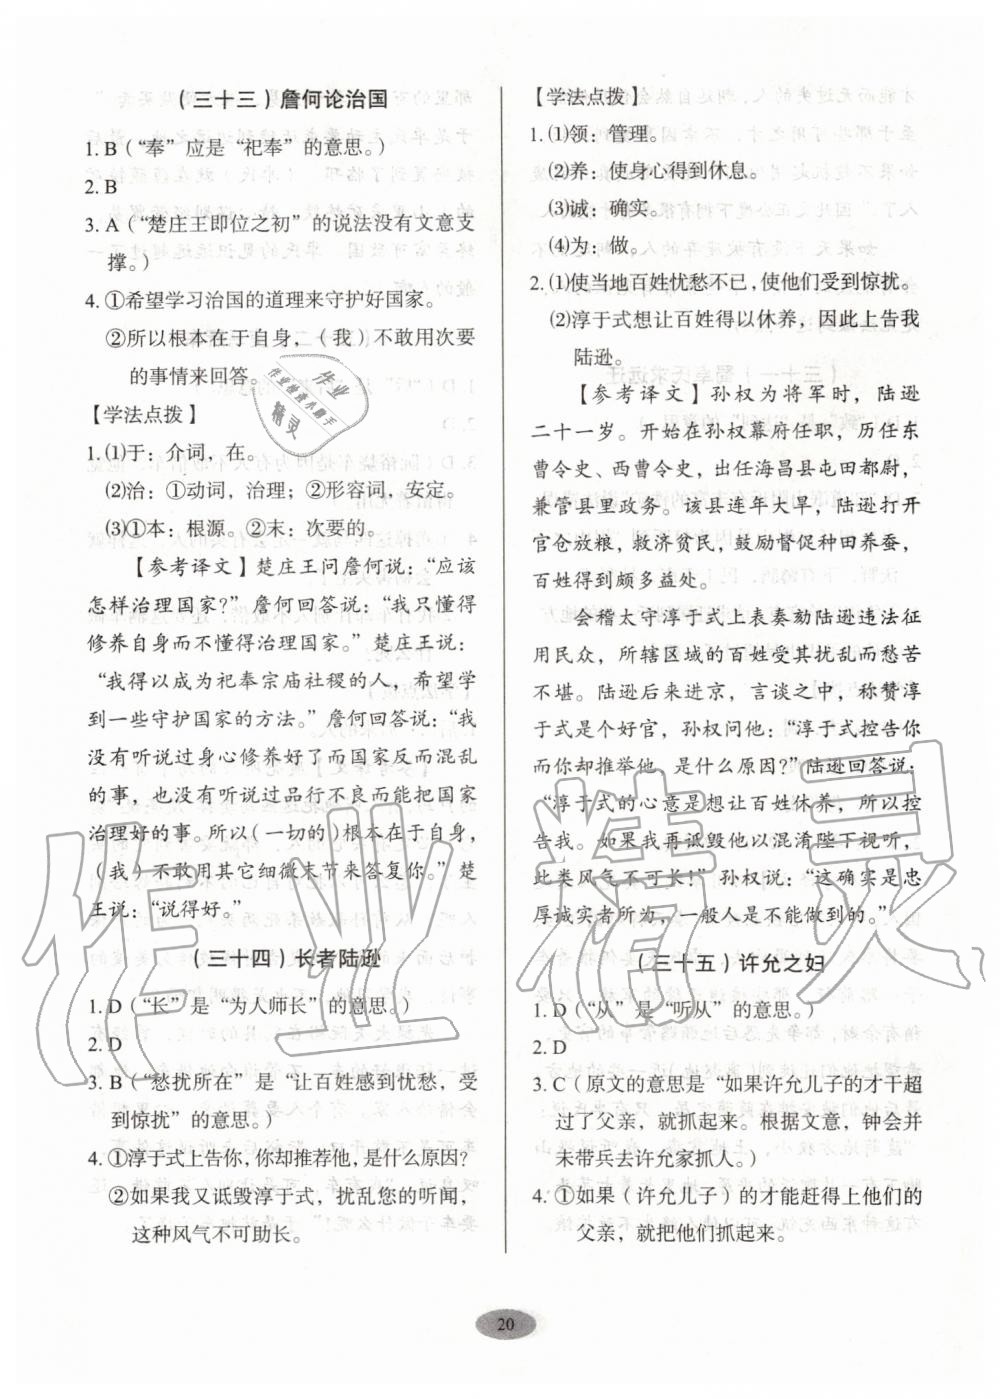 （三十三）詹何论治国
1. B（“奉”应是“祀奉”的意思。）
2. B
3. A（“楚庄王即位之初”的说法没有文意支
撑。）
4. ①希望学习治国的道理来守护好国家。
②所以根本在于自身，（我）不敢用次要
的事情来回答。
【学法点拨】
1. ⑴于：介词，在。
⑵治：①动词，治理；②形容词，安定。
⑶①本：根源。②末：次要的。
【参考译文】楚庄王问詹何说：“应该
怎样治理国家？”詹何回答说：“我只懂得
修养自身而不懂得治理国家。”楚庄王说：
“我得以成为祀奉宗庙社稷的人，希望学
到一些守护国家的方法。”詹何回答说：“我
没有听说过身心修养好了而国家反而混乱
的事，也没有听说过品行不良而能把国家
治理好的事。所以（一切的）根本在于自身，
（我）不敢用其它细微末节来答复你。”楚
王说：“说得好。”
（三十四）长者陆逊
1. D（“长”是“为人师长”的意思。）
2. D
3. B（“愁扰所在”是“让百姓感到忧愁，受
到惊扰”的意思。）
4. ①淳于式上告你，你却推荐他，是什么原因？
②如果我又诋毁淳于式，扰乱您的听闻，
这种风气不可助长。
【学法点拨】
1. ⑴领：管理。
⑵养：使身心得到休息。
⑶诚：确实。
⑷为：做。
2. ⑴使当地百姓忧愁不已，使他们受到惊扰。
⑵淳于式想让百姓得以休养，因此上告我
陆逊。
【参考译文】孙权为将军时，陆逊
二十一岁。开始在孙权幕府任职，历任东
曹令史、西曹令史，出任海昌县屯田都尉，
兼管县里政务。该县连年大旱，陆逊打开
官仓放粮，救济贫民，鼓励督促种田养蚕，
百姓得到颇多益处。
会稽太守淳于式上表奏劾陆逊违法征
用民众，所辖区域的百姓受其扰乱而愁苦
不堪。陆逊后来进京，言谈之中，称赞淳
于式是个好官，孙权问他：“淳于式控告你
而你却推举他，是什么原因？”陆逊回答说：
“淳于式的心意是想让百姓休养，所以控
告我。如果我再诋毁他以混淆陛下视听，
此类风气不可长！”孙权说：“这确实是忠
厚诚实者的行为，一般人是不能做到的。”
（三十五）许允之妇
1. D（“从”是“听从”的意思。）
2. D
3. C（原文的意思是“如果许允儿子的才干超
过了父亲，就抓起来。根据文意，钟会并
未带兵去许允家抓人。）
4. ①如果（许允儿子）的才能赶得上他们的
父亲，就把他们抓起来。
20
作业精灵